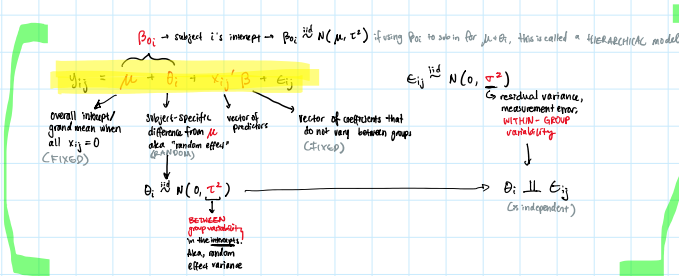 β0i → subject i's intercept → β0i iid~ N(μ, τ²) if using β0i to sub in for μ+θi, this is called a HIERARCHICAL model
yij = μ + θi + xij'β + εij
εij iid~ N(0, σ²)
↳ residual variance,
measurement error,
WITHIN-GROUP
variability
overall intercept/
grand mean when
all xij = 0
(FIXED)
subject-specific
difference from μ
aka "random effect"
(RANDOM)
vector of
predictors
vector of coefficients that
do not vary between groups
(FIXED)
θi iid~ N(0, τ²)
θi ⫫ εij
(independent)
BETWEEN
group variability
in the intercepts.
Aka, random
effect variance